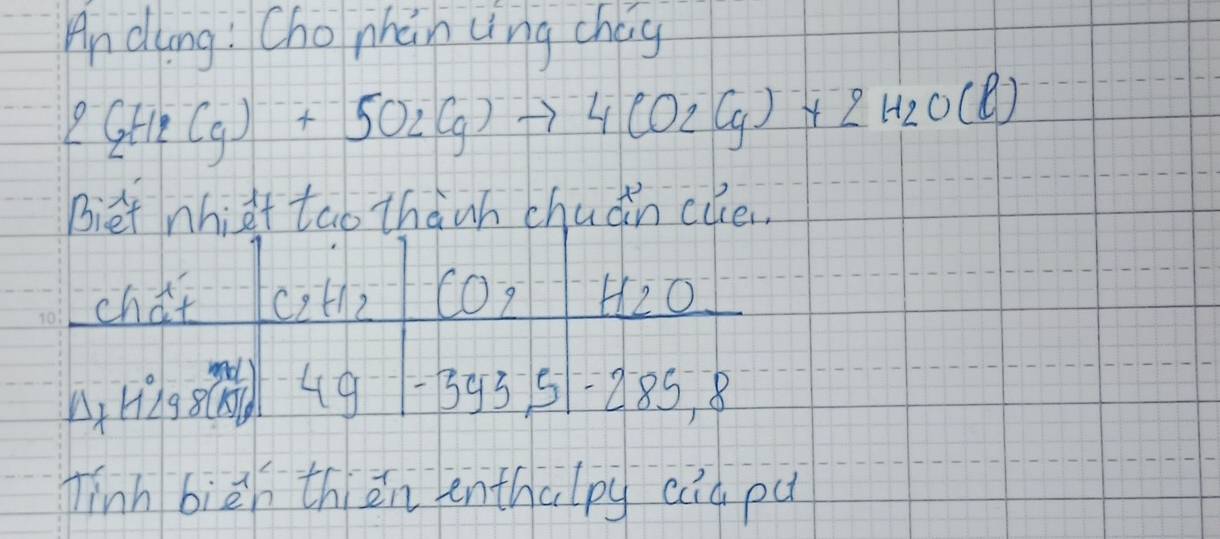 Áp dụng: Cho phản ứng cháy
2 C2H2 (g) + 5O2 (g) → 4 CO2 (g) + 2 H2O (l)
Biết nhiệt tạo thành chuẩn của..
chất C2H2 CO2 H2O
ΔfH°298 (KJ/mol) 49 -393,5 -285,8
Tính biến thiên enthalpy của pư
10